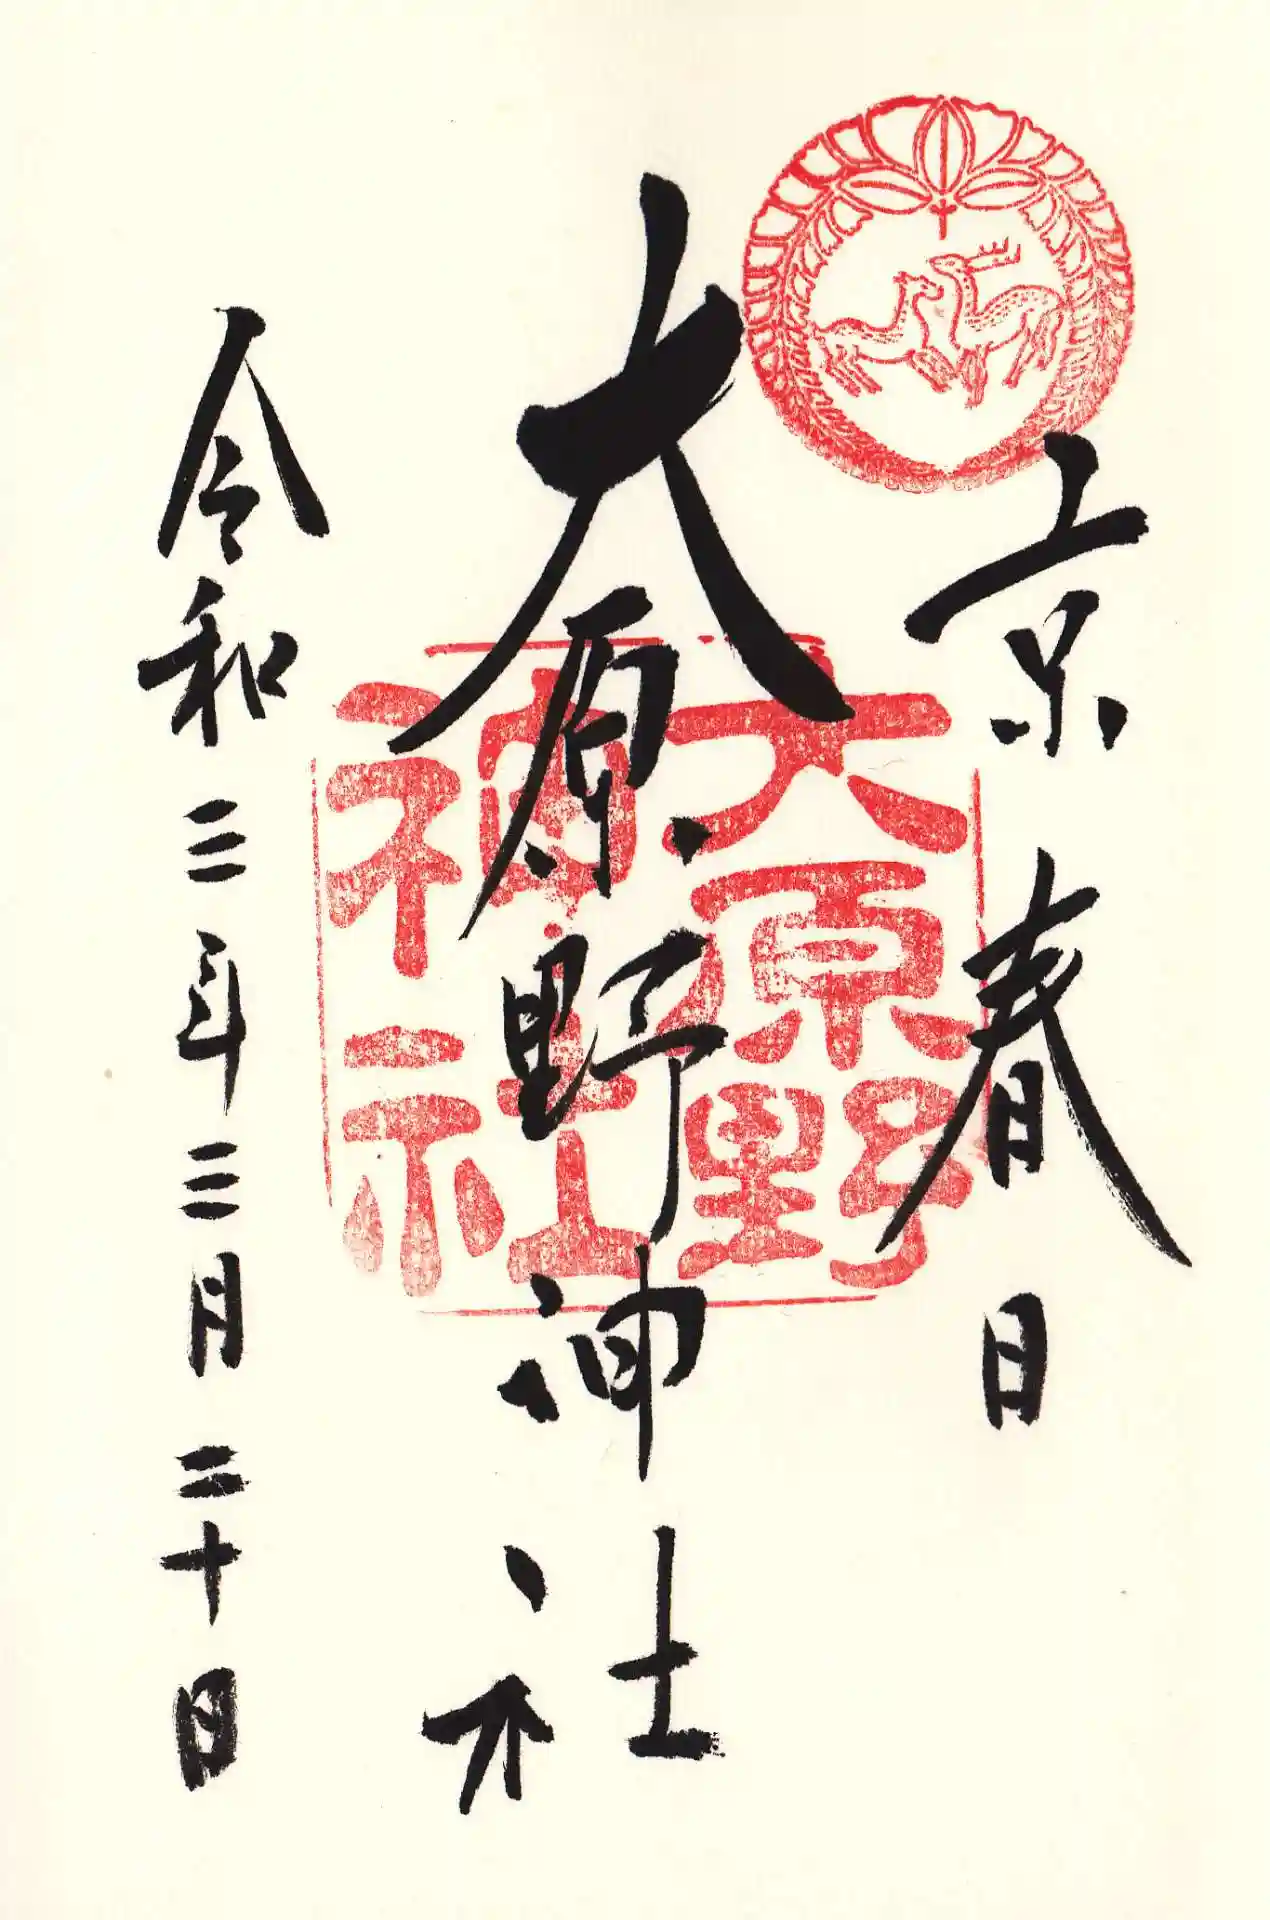 京春日
大原野神社
大原野
神社
令和三年三月二十日